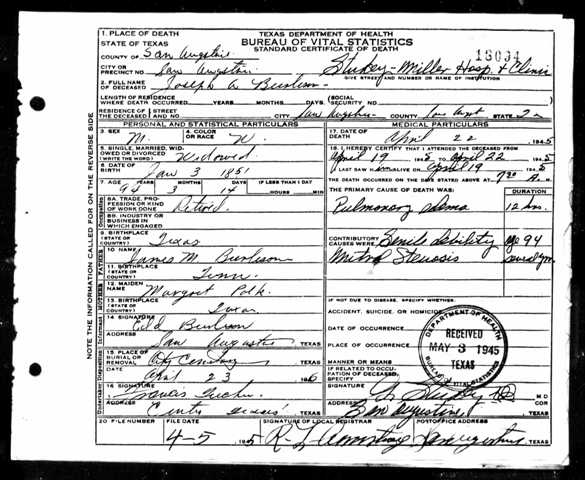 1. PLACE OF DEATH
STATE OF TEXAS
TEXAS DEPARTMENT OF HEALTH
BUREAU OF VITAL STATISTICS
STANDARD CERTIFICATE OF DEATH
COUNTY OF San Augstine
CITY OR PRECINCT NO. San Augstin
Miller Hosp. & Clinic
STREET AND NUMBER OR NAME OF INSTITUTION
2. FULL NAME OF DECEASED Joseph A Burleson
LENGTH OF RESIDENCE WHERE DEATH OCCURRED YEARS MONTHS DAYS
SOCIAL SECURITY NO.
RESIDENCE OF THE DECEASED STREET AND NO. CITY San Augstin COUNTY STATE
PERSONAL AND STATISTICAL PARTICULARS
MEDICAL PARTICULARS
3. SEX M. 4. COLOR OR RACE W.
17. DATE OF DEATH April 22 1945
5. SINGLE, MARRIED, WIDOWED OR DIVORCED (WRITE THE WORD) Widowed
18. I HEREBY CERTIFY THAT I ATTENDED THE DECEASED FROM
April 19 1945 TO April 22 1945
6. DATE OF BIRTH Jan 3 1851
I LAST SAW ALIVE ON April 19 1945
THE DEATH OCCURRED ON THE DATE STATED ABOVE AT 7:30 M.
7. AGE YEARS 94 MONTHS 3 DAYS 14 IF LESS THAN 1 DAY HOURS MIN
THE PRIMARY CAUSE OF DEATH WAS: DURATION
8A. TRADE, PROFESSION OR KIND OF WORK DONE Retired
Pulmonary edema 12 hrs.
8B. INDUSTRY OR BUSINESS IN WHICH ENGAGED
9. BIRTHPLACE (STATE OR COUNTRY) Texas
CONTRIBUTORY CAUSES WERE Senile debility age 94
10 NAME James M. Burleson
Mitral Stenosis
11. BIRTHPLACE (STATE OR COUNTRY) Tenn.
12. MAIDEN NAME Margaret Polk
IF NOT DUE TO DISEASE, SPECIFY WHETHER:
13. BIRTHPLACE (STATE OR COUNTRY) Texas
ACCIDENT, SUICIDE, OR HOMICIDE
14 SIGNATURE Burleson
DATE OF OCCURRENCE
ADDRESS San Augustin TEXAS
PLACE OF OCCURRENCE
DEPARTMENT OF HEALTH
RECEIVED
MAY 3 1945
TEXAS
BUREAU OF VITAL STATISTICS
15. PLACE OF BURIAL OR REMOVAL City Cemetery TEXAS
MANNER OR MEANS
DATE April 23
IF RELATED TO OCCUPATION OF DECEASED, SPECIFY
16 SIGNATURE Francis
SIGNATURE M D COR
ADDRESS Center Texas
ADDRESS San Augustine TEXAS
20 FILE NUMBER FILE DATE SIGNATURE OF LOCAL REGISTRAR POSTOFFICE ADDRESS
4-5 1945 R. L. Armstrong San Augustine TEXAS
NOTE THE INFORMATION CALLED FOR ON THE REVERSE SIDE.